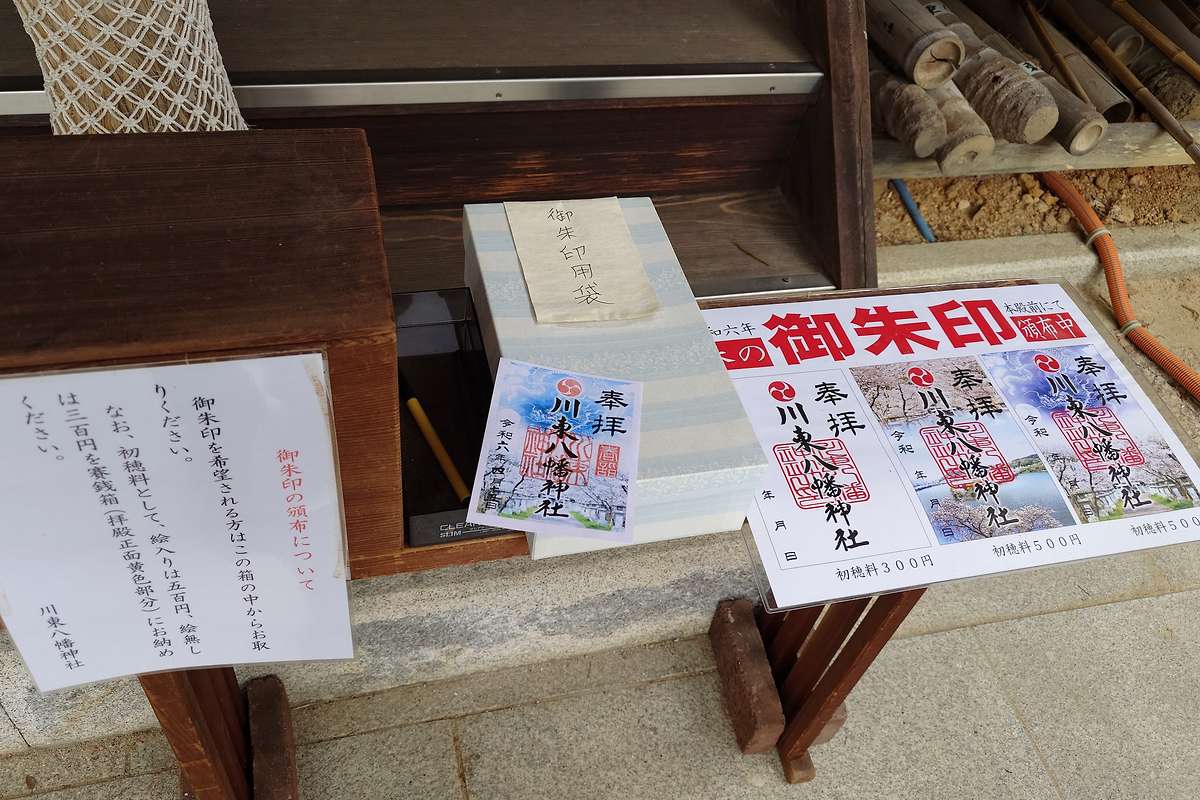 御朱印の頒布について
御朱印を希望される方はこの箱の中からお取
りください。
なお、初穂料として、絵入りは五百円、絵無し
は三百円を賽銭箱(拝殿正面黄色部分)にお納め
ください。
川東八幡神社
御朱印用袋
奉拝
川東八幡神社
令和六年四月
CLEAR
SLIM
和六年
の
御朱印
本殿前にて
頒布中
奉拝
川東八幡神社
年 月 日
初穂料300円
奉拝
川東八幡神社
令和 年 月 日
初穂料500円
奉拝
川東八幡神社
令和 年 月
初穂料500